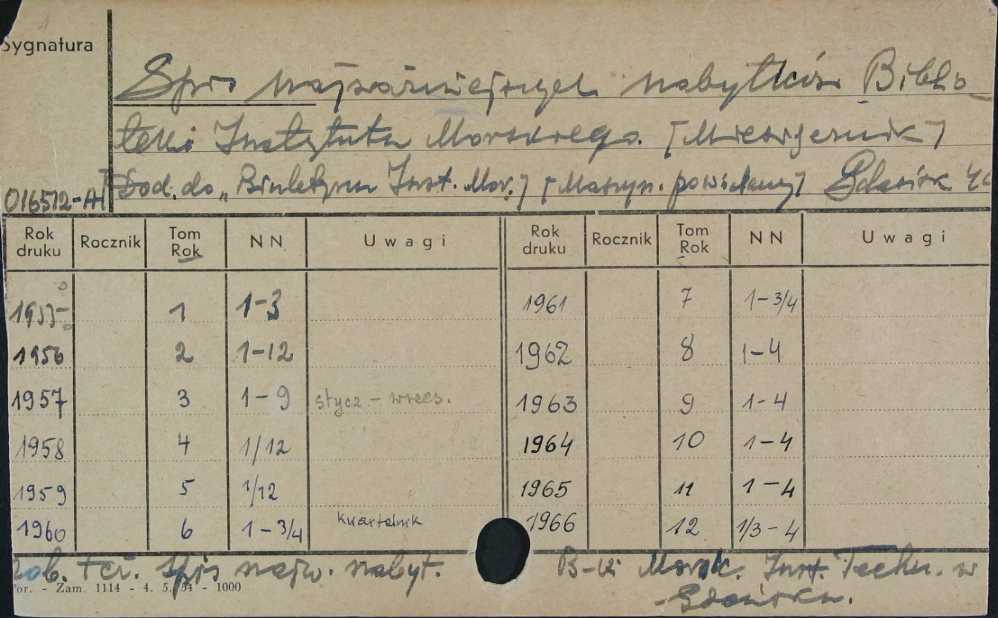 Sygnatura
Spis najważniejszych nabytków Biblio-
teki Instytutu Morskiego. [Miesięcznik]
016572-A [Dod. do „Biuletynu Inst. Mor.] [Maszyn. powielany] Gdańsk
Rok druku Rocznik Tom Rok NN Uwagi Rok druku Rocznik Tom Rok NN Uwagi
1955 1 1-3 1961 7 1-3/4
1956 2 1-12 1962 8 1-4
1957 3 1-9 stycz-wrzes. 1963 9 1-4
1958 4 1/12 1964 10 1-4
1959 5 1/12 1965 11 1-4
1960 6 1-3/4 kwartalnik 1966 12 1/3-4
zob. też. Spis najw. nabyt. B-ki Morsk. Inst. Techn. w
Gdańsku.
Tor. - Zam. 1114 - 4. 5. 54 - 1000